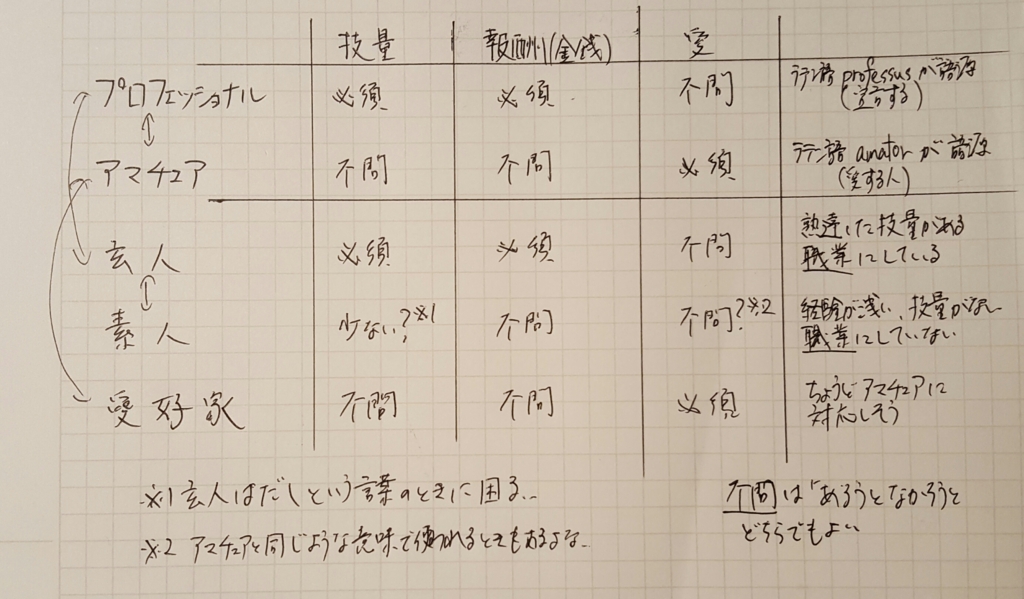 技量 報酬(金銭) 愛
プロフェッショナル 必須 必須 不問 ラテン語 professus が語源
(宣言する)
アマチュア 不問 不問 必須 ラテン語 amator が語源
(愛する人)
玄人 必須 必須 不問 熟達した技量がある
職業にしている
素人 少ない?※1 不問 不問?※2 経験が浅い、技量がない
職業にしていない
愛好家 不問 不問 必須 ちょうどアマチュアに
対応しそう
※1 玄人はだしという言葉のときに困る...
※2 アマチュアと同じような意味で使われるときもあるよな..
不問は「あろうとなかろうと
どちらでもよい